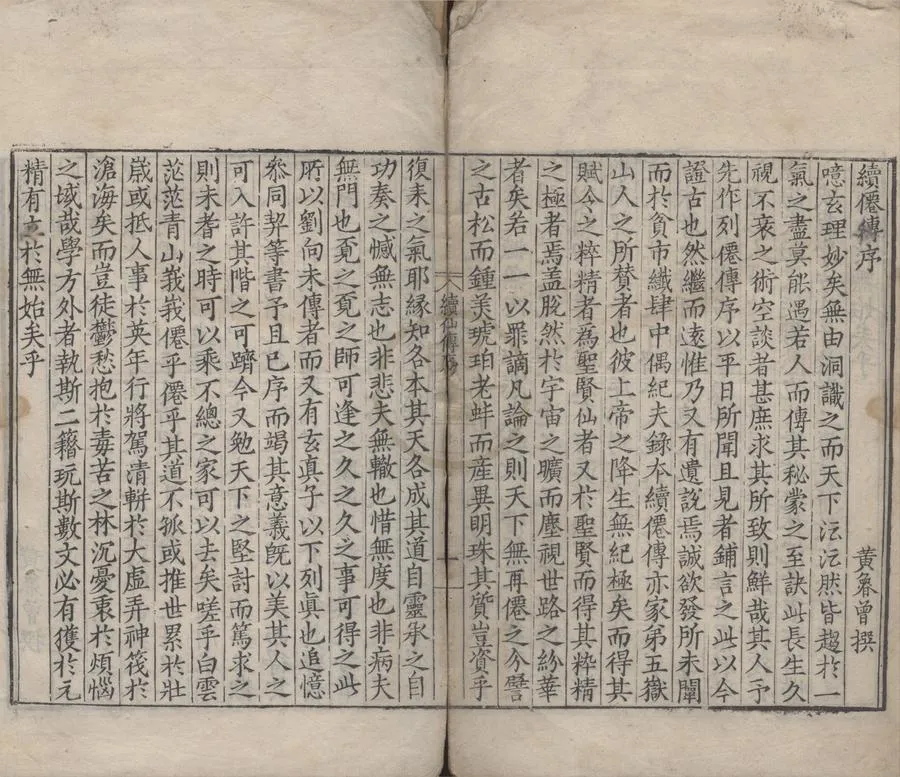 續僊傳序
黃魯曾撰
噫玄理妙矣無由洞識之而天下沄沄然皆趨於一
氣之盡莫能遇若人而傳其秘蒙之至訣此長生久
視不衰之術空談者甚庶求其所致則鮮哉其人予
先作列僊傳序以平日所聞且見者鋪言之此以今
證古也然繼而遠惟乃又有遺說焉誠欲發所未闡
而於貧市纖肆中偶紀夫錄本續僊傳亦家弟五嶽
山人之所贊者也彼上帝之降生無紀極矣而得其
賦今之粹精者為聖賢仙者又於聖賢而得其粋精
之極者焉盖脫然於宇宙之曠而塵視世路之紛華
者矣若一一以罪謫凡論之則天下無再僊之今譬
之古松而鍾美琥珀老蚌而産異明珠其質豈資乎
續仙傳序
一
復耒之氣耶緣知各本其天各成其道自靈承之自
功奏之憾無志也非悲夫無轍也惜無度也非病夫
無門也覔之覔之師可逢之久之久之事可得之此
所以劉向未傳者而又有玄真子以下列眞也追憶
叅同契等書予且已序而竭其意義旣以美其人之
可入許其階之可躋今又勉天下之堅討而篤求之
則未耆之時可以乘不總之家可以去矣嗟乎白雲
茫茫青山峩峩僊乎僊乎其道不孤或推世累於壯
嵗或抵人事於英年行將駕清輧於大虛弄神筏於
滄海矣而豈徒鬱愁抱於毒苦之林沉憂衷於煩惱
之域哉學方外者執斯二籍玩斯數文必有獲於元
精有立於無始矣乎